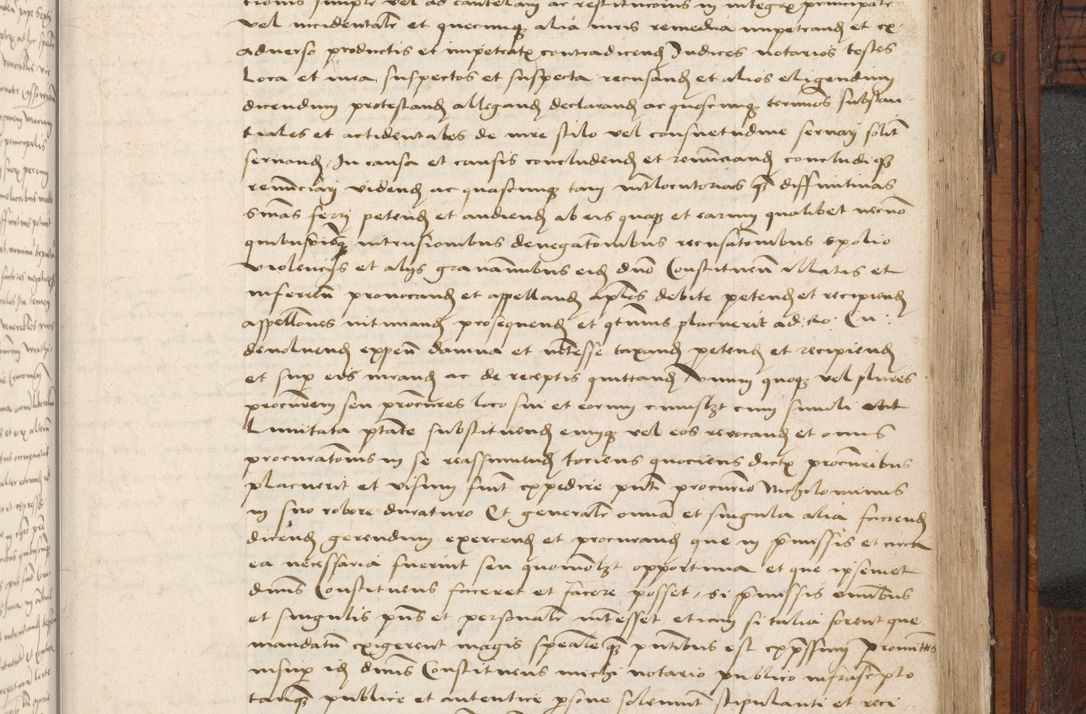 tionis simpl'r vel ad cautelam ac restitucionis in integrx principalr
vel incidentalr et quecunqz alia iuris remedia impetrand et ex
adverso productis et impetratx contradicend Judices notarios testes
Loca et iura suspectos et suspecta recusand et alios eligendum
dicendum protestand allegand declarand ac quoscunqz terminos substan
tiales et accidentales de iure stilo vel consuetudine servarj solit
servand In causa et causis concludend et renunciand concludiqz
renunciarj vidend ac quascunqz tam interlocutorias qz diffinitivas
sentias ferrj petend et audiend ab eis quoqz et earum qualibet necno
quibuspiaqz intrusionibus denegatonibus recusatonibus spolio
violencijs et alijs gravaminibus eid dno Constituen illatis et
inferen provocand et appelland aplos debite petend et recipiend
appellones intimand prosequend et qtenus placuerit ad Ro. Cu.
devoluend expen damna et interesse taxand petend et recipiend
et sup eis iurand ac de receptis quittand Unum quoqz vel plures
procurem seu procures loco sui et eorum cuiuslzt cum simili aut
Limitata ptate substituend eumqz vel eos revocand et onus
procuratonis in se reassumend tociens quociens dictx procuribus
placuerit et visum fuit expedire pnti procurio Nichilominus
in suo robore duraturo Et generalr omnia et singula alia faciend
dicend gerendum exercend et procurand que in pmissis et circa
ea necessaria fuerint seu quomolzt opportuna et que ipsemet
dnus Constituens faceret et facere posset, si pmissis omnibus
et singulis pns et personalr interesset etiam si talia forent que
mandatu exigerent magis speciale qz pntibus est expressum Promittes
insup id dnus Constituens michi notario publico infrascripto
tanqz publice et autentice psone solemnit stipulanti et reci